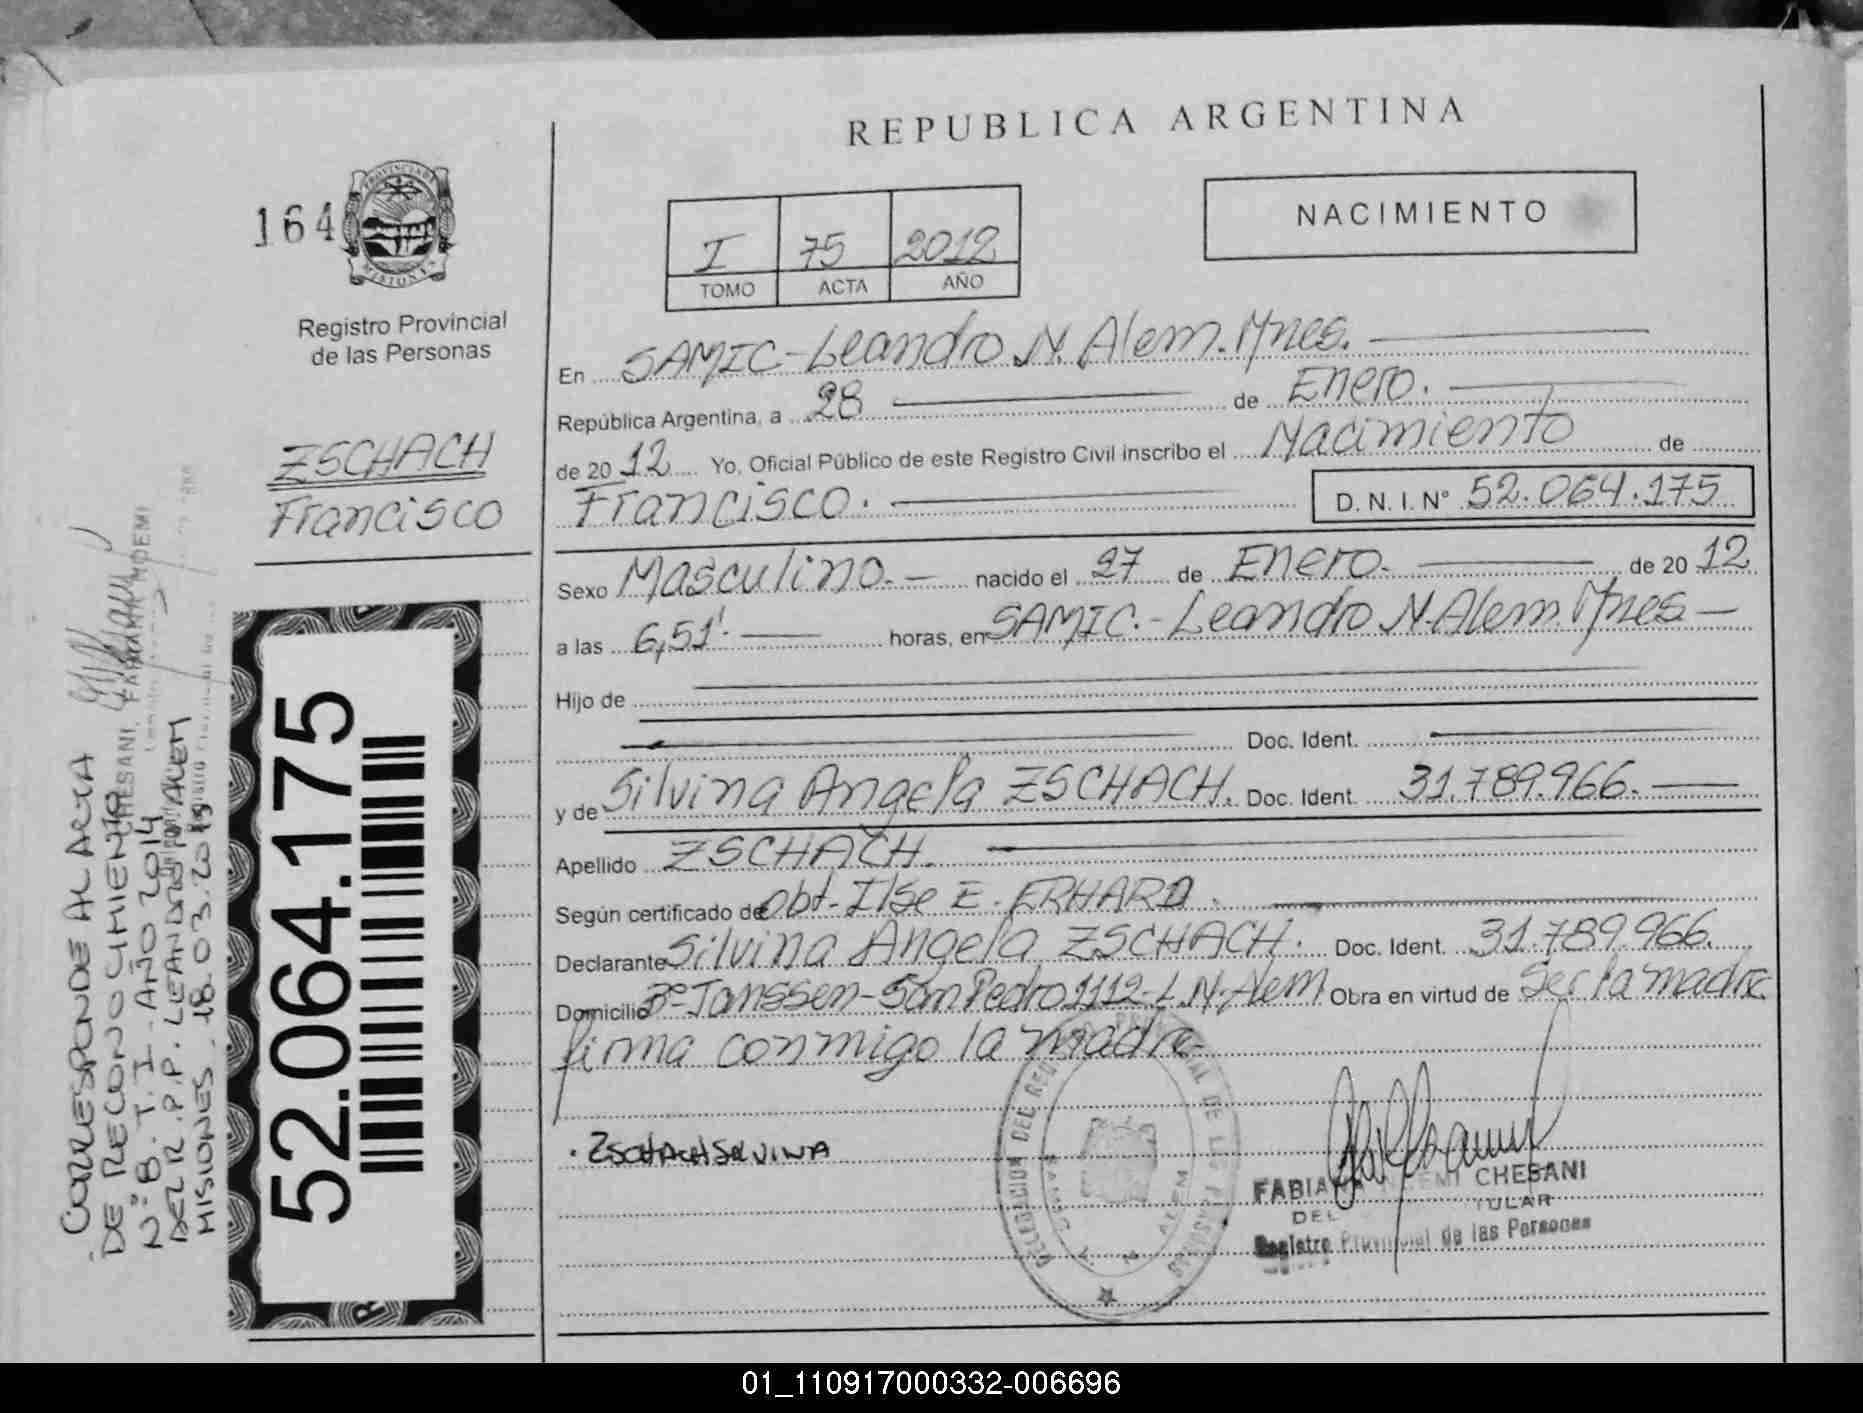 REPUBLICA ARGENTINA
164
PROVINCIA DE MISIONES
Registro Provincial
de las Personas
I 75 2012
TOMO ACTA AÑO
NACIMIENTO
En SAMIC-Leandro N. Alem. Mnes.
República Argentina, a 28 de Enero.
de 2012 Yo, Oficial Público de este Registro Civil inscribo el Nacimiento de
Francisco. D. N. I. N° 52.064.175
ZSCHACH
Francisco
Sexo Masculino. nacido el 27 de Enero. de 2012
a las 6,51'. horas, en SAMIC.-Leandro N. Alem. Mnes
Hijo de
Doc. Ident.
y de Silvina Angela ZSCHACH. Doc. Ident. 31.789.966.
Apellido ZSCHACH.
Según certificado de Obt. Ilse E. ERHARD.
Declarante Silvina Angela ZSCHACH. Doc. Ident. 31.789.966.
Domicilio Bº Janssen-San Pedro 1112-L.N. Alem Obra en virtud de Ser la madre
firma conmigo la madre
ZSCHACH SILVINA
DELEGACION DEL REGISTRO PROVINCIAL DE LAS PERSONAS
SAMIC L. N. ALEM
FABIANA NOEMI CHESANI
TULAR
DEL
Registro Provincial de las Personas
52.064.175
CORRESPONDE AL ACTA
DE RECONOCIMIENTO
N° 8. T. I. AÑO 2014
DEL R.P.P. LEANDRO N. ALEM
MISIONES. 18.03.2015
CHESANI, FABIANA NOEMI
01_110917000332-006696